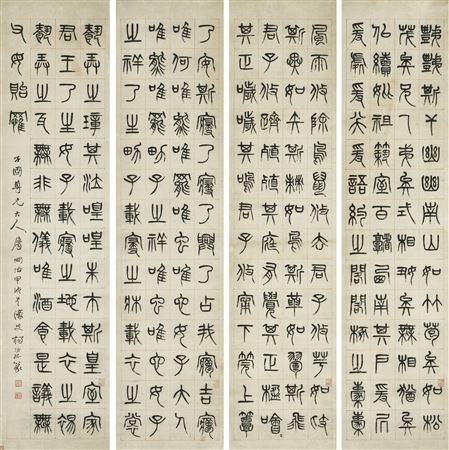 豑豑斯干幽幽南山如竹苞矣如松
茂矣兄及弟矣式相好矣無相猶矣
似續妣祖築室百堵西南其戶爰居
爰處爰笑爰語約之閣閣椓之橐橐
風雨攸除鳥鼠攸去君子攸芋如跂
斯翼如矢斯棘如鳥斯革如翬斯飛
君子攸躋殖殖其庭有覺其楹噲噲
其正噦噦其冥君子攸寧下莞上簟
乃安斯寢乃寢乃興乃占我夢吉夢
唯何唯熊唯羆唯虺唯蛇大人占之
唯熊唯羆男子之祥唯虺唯蛇女子
之祥乃生男子載寢之牀載衣之裳
載弄之璋其泣喤喤朱芾斯皇室家
君王乃生女子載寢之地載衣之裼
載弄之瓦無非無儀唯酒食是議無
父母貽罹
國尊兄大人屬 同治甲戌 濠叟楊沂孫篆